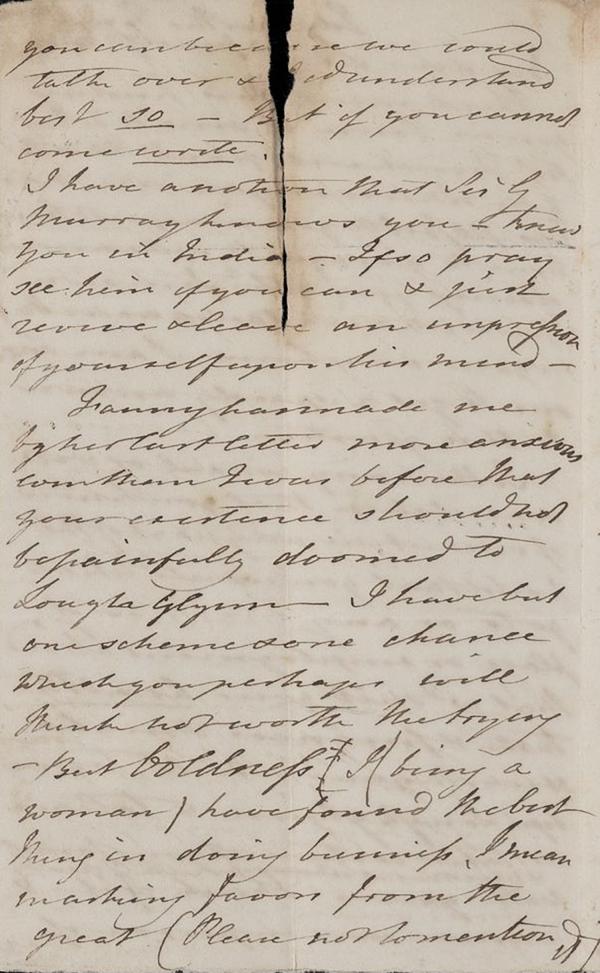 you can because we could
talk over & understand
best so — But if you cannot
come write.
I have a notion that Sir G
Murray knows you — knew
you in India — If so pray
see him if you can & just
revive & leave an impression
of yourself upon his mind —
Fanny has made me
by her last letter more anxious
even than I was before that
your existence should not
be painfully doomed to
Lough Glynn — I have but
one scheme & one chance
which you perhaps will
think not worth the trying
— But boldness I (being a
woman) have found the best
thing in doing business, I mean
in asking favors from the
great (Please not to mention it)